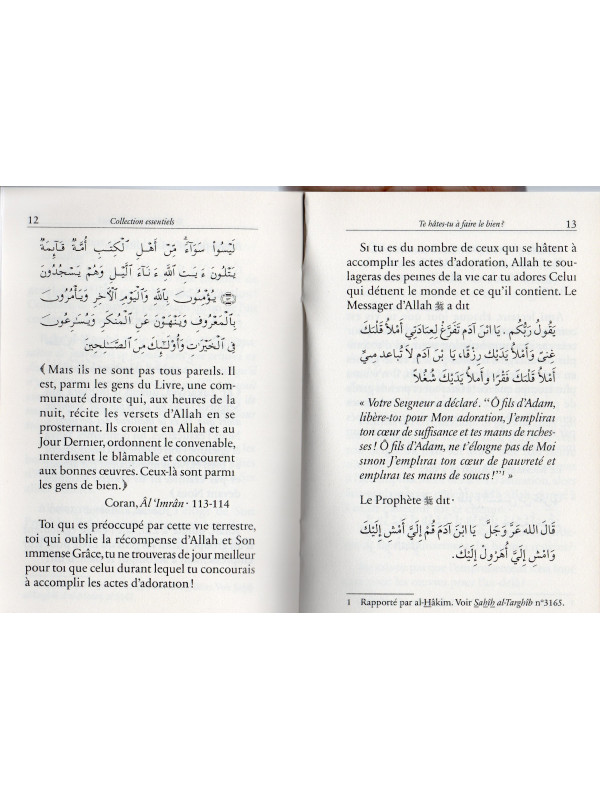 12
Collection essentiels
لَيْسُوا۟ سَوَآءً ۗ مِّنْ أَهْلِ ٱلْكِتَـٰبِ أُمَّةٌ قَآئِمَةٌ
يَتْلُونَ ءَايَـٰتِ ٱللَّهِ ءَانَآءَ ٱلَّيْلِ وَهُمْ يَسْجُدُونَ
﴿١١٣﴾ يُؤْمِنُونَ بِٱللَّهِ وَٱلْيَوْمِ ٱلْـَٔاخِرِ وَيَأْمُرُونَ
بِٱلْمَعْرُوفِ وَيَنْهَوْنَ عَنِ ٱلْمُنكَرِ وَيُسَـٰرِعُونَ
فِى ٱلْخَيْرَٰتِ وَأُو۟لَـٰٓئِكَ مِنَ ٱلصَّـٰلِحِينَ
﴾Mais ils ne sont pas tous pareils. Il
est, parmi les gens du Livre, une com-
munauté droite qui, aux heures de la
nuit, récite les versets d'Allah en se
prosternant. Ils croient en Allah et au
Jour Dernier, ordonnent le convenable,
interdisent le blâmable et concourent
aux bonnes œuvres. Ceux-là sont parmi
les gens de bien.﴿
Coran, Âl 'Imrân · 113-114
Toi qui es préoccupé par cette vie terrestre,
toi qui oublie la récompense d'Allah et Son
immense Grâce, tu ne trouveras de jour meilleur
pour toi que celui durant lequel tu concourais
à accomplir les actes d'adoration !
Te hâtes-tu à faire le bien ?
13
Si tu es du nombre de ceux qui se hâtent à
accomplir les actes d'adoration, Allah te sou-
lageras des peines de la vie car tu adores Celui
qui détient le monde et ce qu'il contient. Le
Messager d'Allah ﷺ a dit
يَقُولُ رَبُّكُم . يَا ابْنَ آدَمَ تَفَرَّغْ لِعِبَادَتِي أَمْلَأْ قَلْبَكَ
غِنًى وَأَمْلَأْ يَدَيْكَ رِزْقًا يَا بْنَ آدَمَ لَا تُبَاعِد مِنِّي
أَمْلَأْ قَلْبَكَ فَقْرًا وَأَمْلَأْ يَدَيْكَ شُغْلًا
« Votre Seigneur a déclaré. "Ô fils d'Adam,
libère-toi pour Mon adoration, J'emplirai
ton cœur de suffisance et tes mains de riches-
ses ! Ô fils d'Adam, ne t'éloigne pas de Moi
sinon J'emplirai ton cœur de pauvreté et
emplirai tes mains de soucis !"¹ »
Le Prophète ﷺ dit ·
قَالَ الله عَزَّ وَجَلَّ يَا ابْنَ آدَمَ قُمْ إِلَيَّ أَمْشِ إِلَيْكَ
وَامْشِ إِلَيَّ أُهَرْوِلْ إِلَيْكَ.
1 Rapporté par al-Hâkim. Voir Sahîh al-Targhîb n°3165.